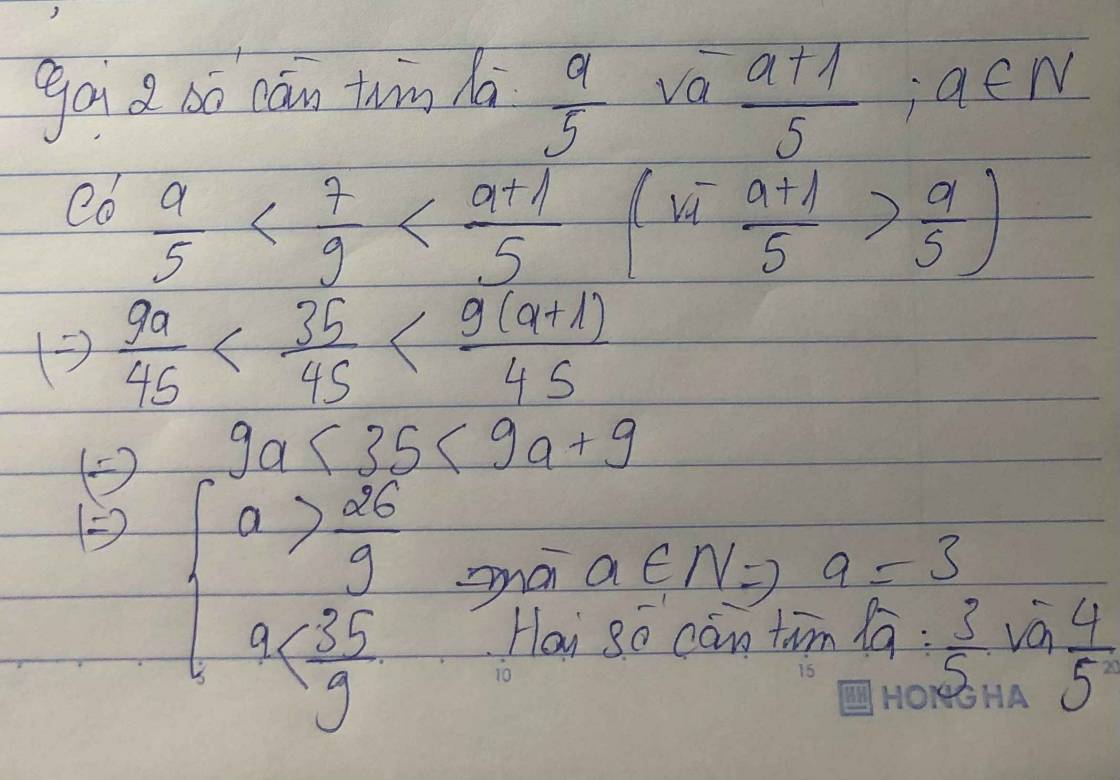 Gọi 2 số cần tìm là: a/5 và (a+1)/5 ; a ∈ N
Có a/5 < 7/9 < (a+1)/5 (vì (a+1)/5 > a/5)
(=) 9a/45 < 35/45 < 9(a+1)/45
(=) 9a < 35 < 9a + 9
(=) { a > 26/9
mà a ∈ N => a = 3
a < 35/9
Hai số cần tìm là : 3/5 và 4/5
5 10 15 20
HH HONG HA